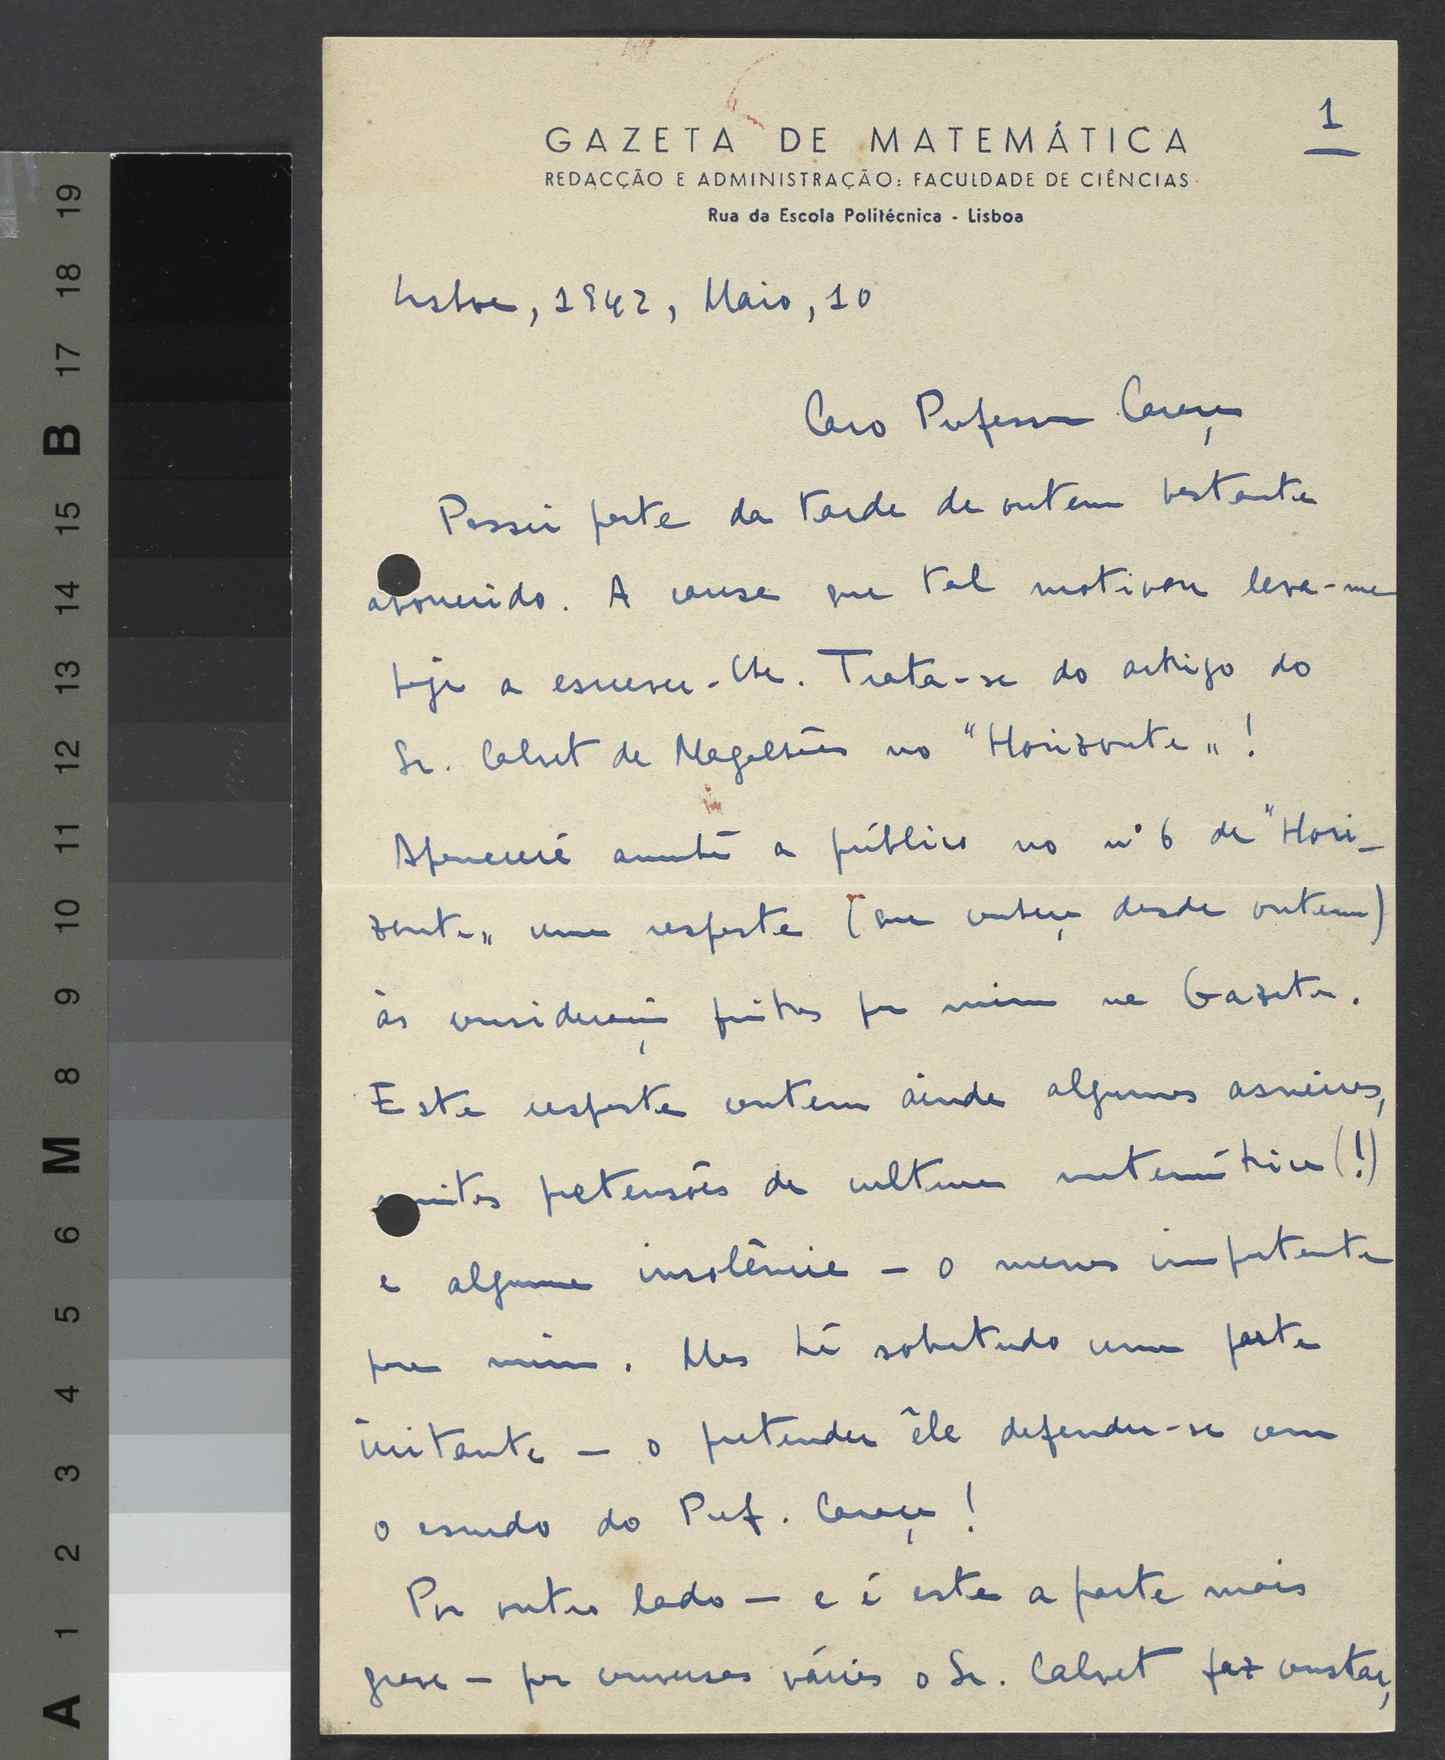 1
GAZETA DE MATEMÁTICA
REDACÇÃO E ADMINISTRAÇÃO: FACULDADE DE CIÊNCIAS
Rua da Escola Politécnica - Lisboa
Lisboa, 1942, Maio, 10
Caro Professor Caraça
Passei parte da tarde de ontem bastante
aborrecido. A causa que tal motivou leva-me
hoje a escrever-lhe. Trata-se do artigo do
Sr. Calvet de Magalhães no "Horizonte" !
Aparecerá amanhã a público no nº 6 de "Hori-
zonte" uma resposta (que conheço desde ontem)
às considerações feitas por mim na Gazeta.
Esta resposta contem ainda algumas asneiras,
muitas pretensões de cultura matemática (!)
e alguma insolência — o menos importante
para mim. Mas há sobretudo uma parte
irritante — o pretender êle defender-se com
o escudo do Prof. Caraça !
Por outro lado — e é esta a parte mais
grave — por conversas várias o Sr. Calvet faz constar,
19
18
17
B
15
14
13
12
11
10
9
8
M
6
5
4
3
2
1
A